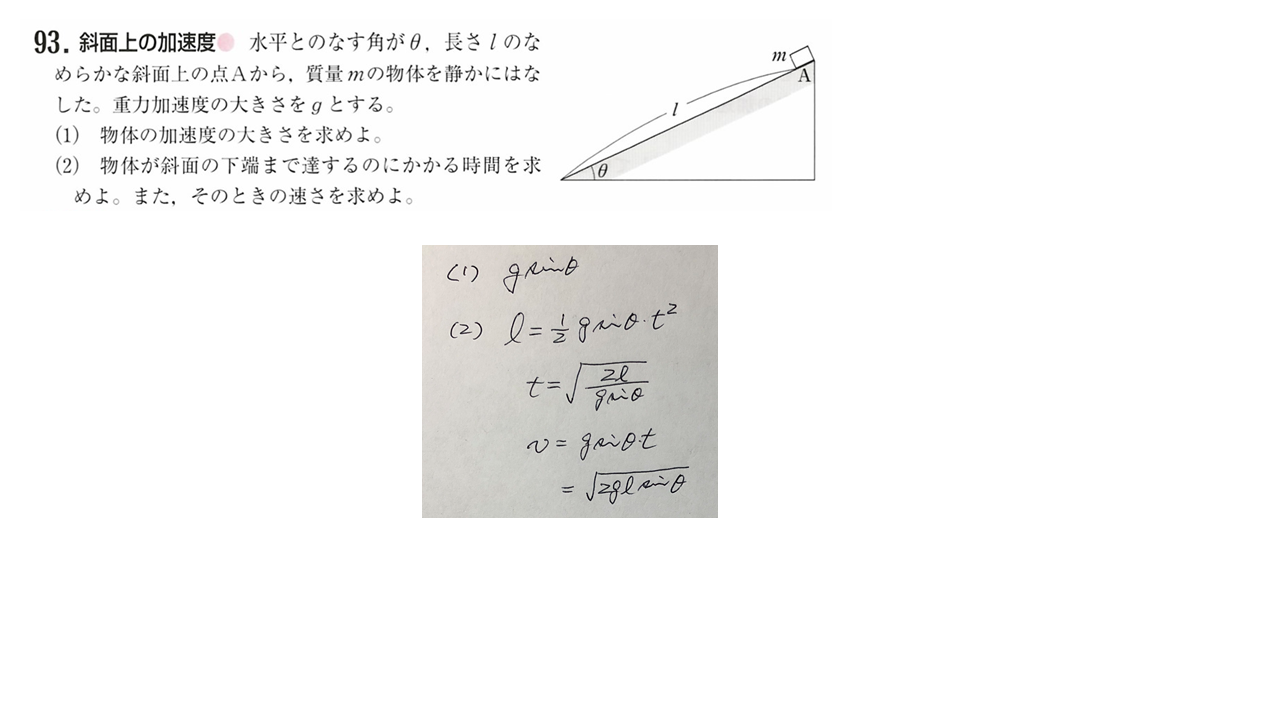 93. 斜面上の加速度 水平とのなす角がθ, 長さlのな
めらかな斜面上の点Aから, 質量mの物体を静かにはな
した。重力加速度の大きさをgとする。
(1) 物体の加速度の大きさを求めよ。
(2) 物体が斜面の下端まで達するのにかかる時間を求
めよ。また, そのときの速さを求めよ。
m
A
l
θ
(1) g sinθ
(2) l = 1/2 g sinθ・t²
t = √(2l / g sinθ)
v = g sinθ・t
= √(2gl sinθ)